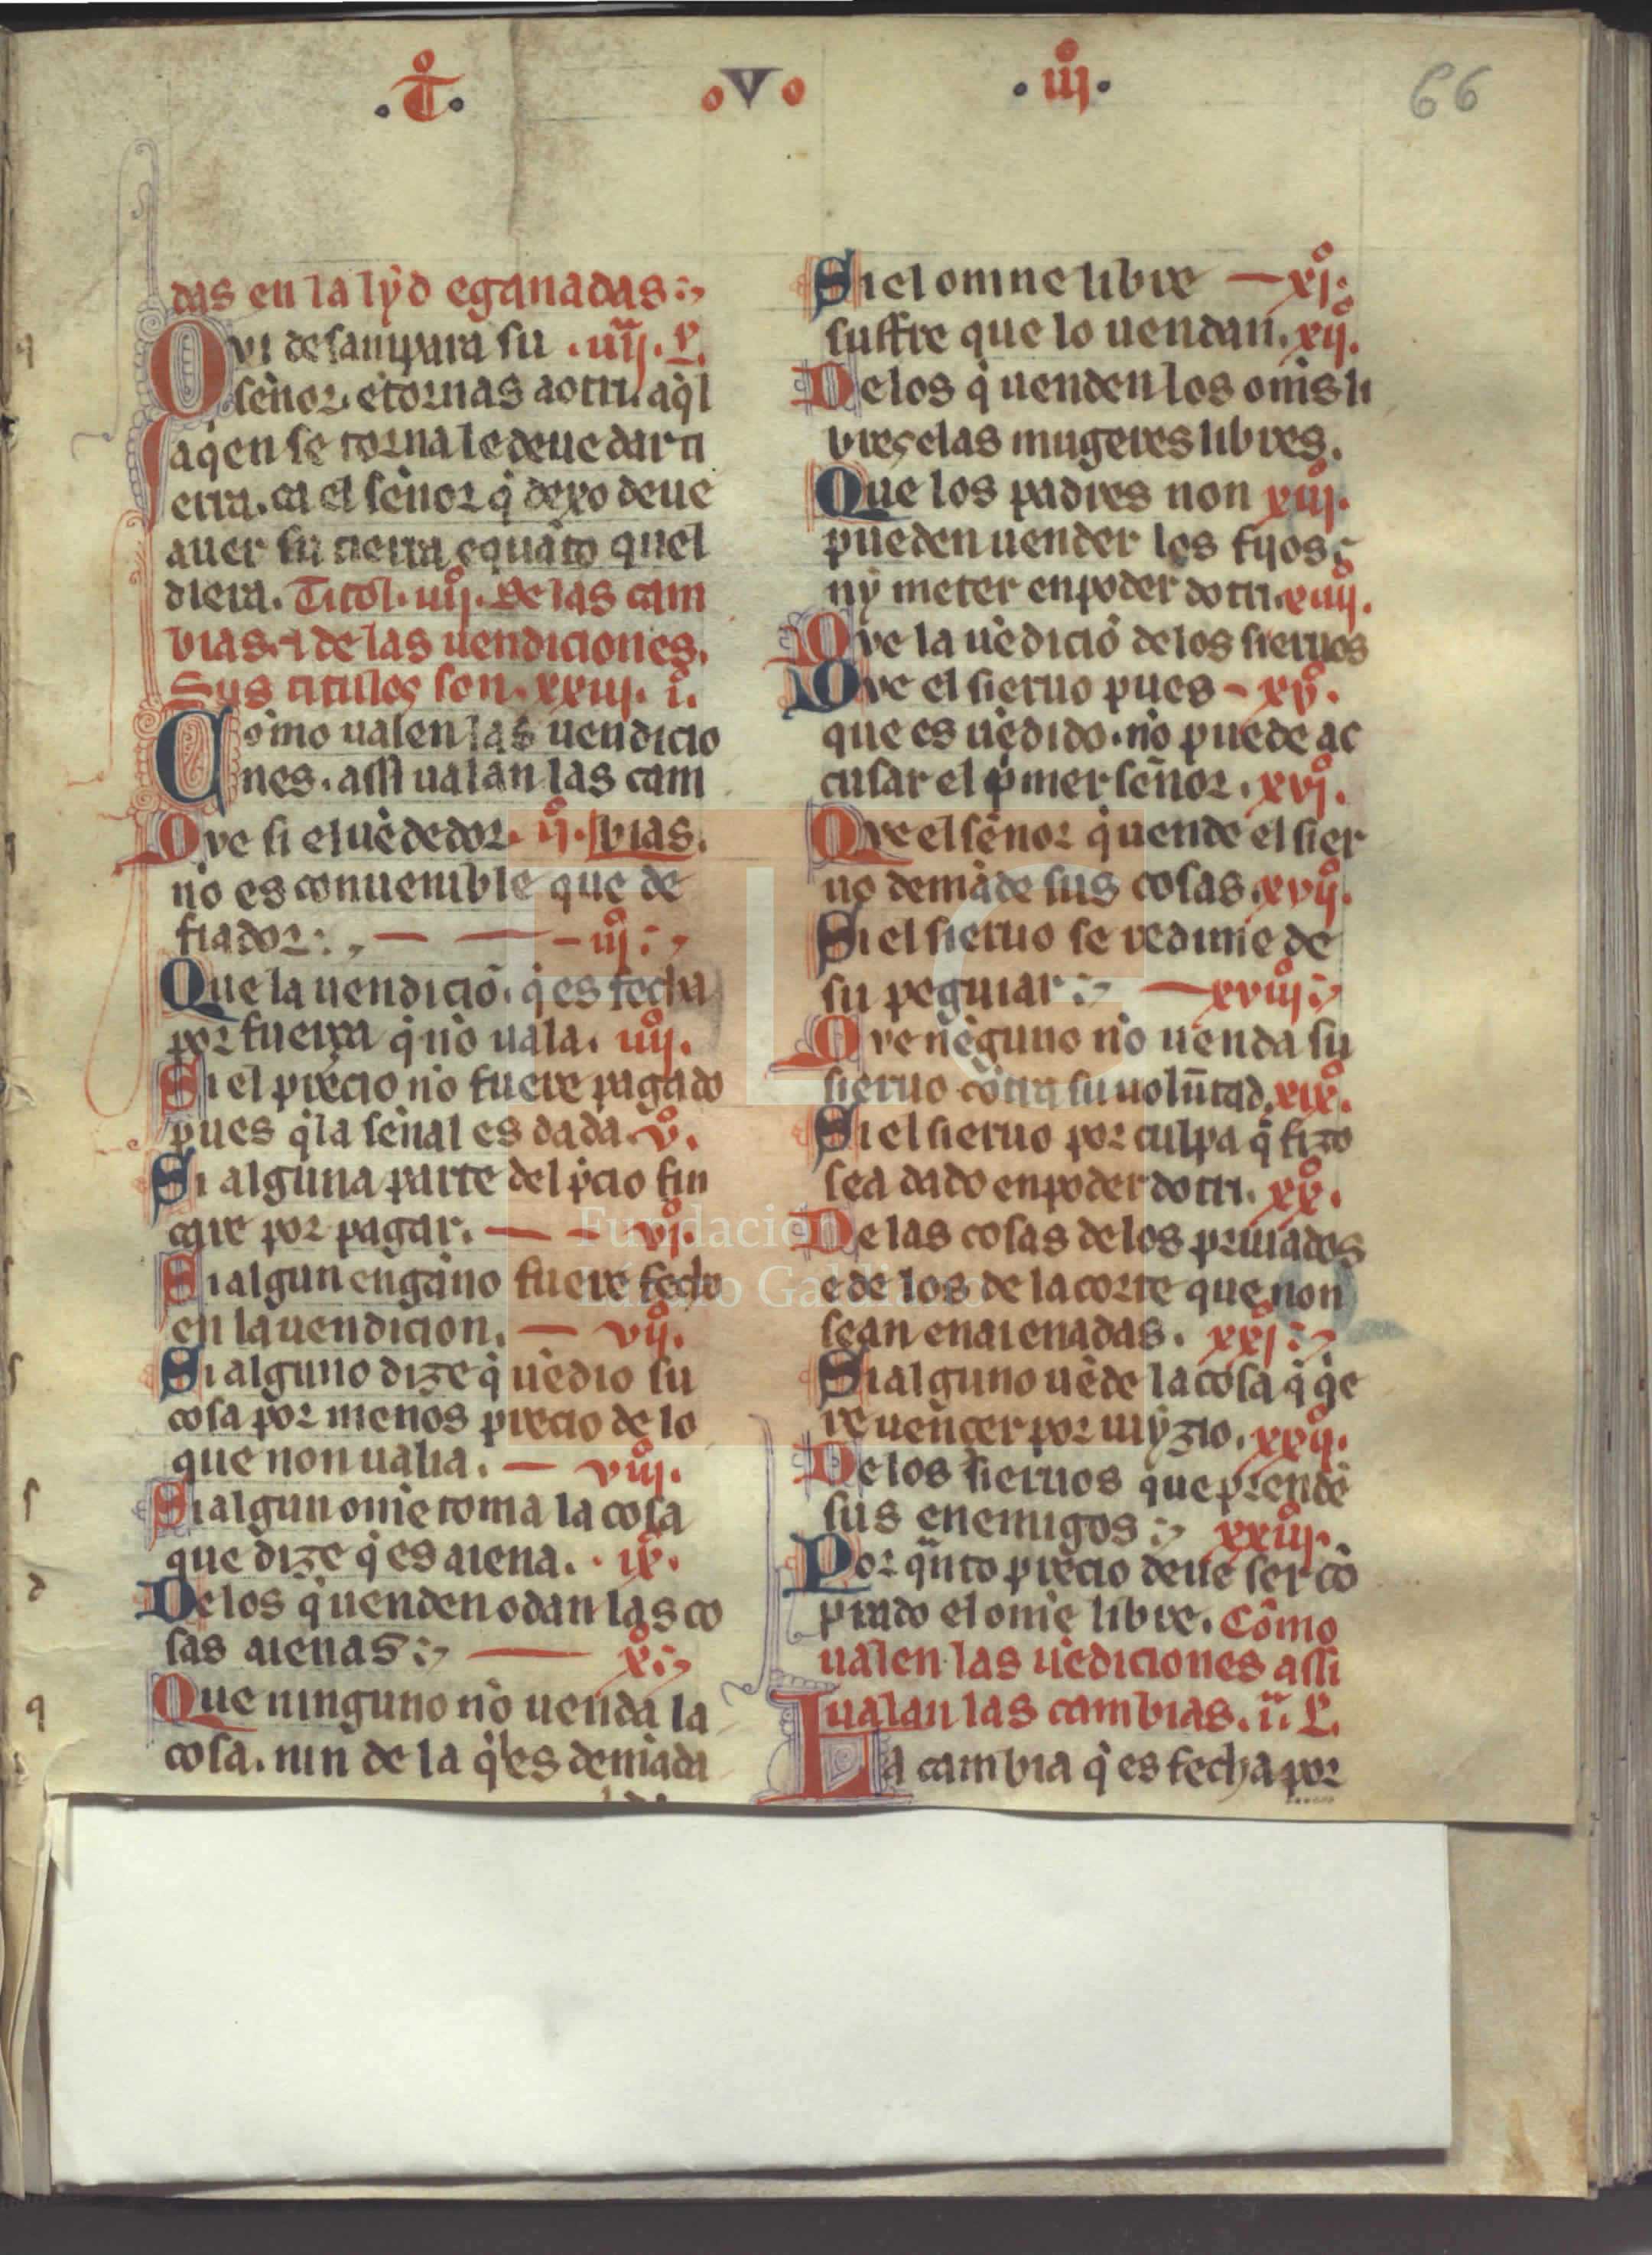 .T̊. o V o .iiij̊. 66
das en la lẏd e ganadas:~
Qvi desampara su .iiij. L.
señor. e tornas a otri. aq̇l
a qen se torna le deue dar ti
erra. ca el señor q̇ dexo deue
auer su tierra e quãto quel
diera. Titol. iiij̊. De las cam
bias. ⁊ de las uendiciones.
Sus titulos son. xxiij. i̊.
Como ualen las uendicio
nes. assi ualan las cam
Qve si el uẽdedor. ij̊. bias.
nõ es conuenible que de
fiador:, — — — iij̊:~
Que la uendiciõ. q̇ es fecha
por fuerça q̇ nõ uala. iiij̊.
Si el precio nõ fuere pagado
pues q̇ la señal es dada. v̊.
Si alguna parte del p̃cio fin
care por pagar. — — vj̊.
Si algun engãno fuere fecho
en la uendicion. — vij̊.
Si alguno dize q̇ uẽdio su
cosa por menos precio de lo
que non ualia. — viij̊.
Si algun om̃e toma la cosa
que dize q̇ es aiena. . ix̊.
De los q̇ uenden o dan las co
sas aienas:~ — x̊:~
Que ninguno nõ uenda la
cosa. nin de la q̇ es demãda
Si el omne libre — xj̊:
suffre que lo uendan. xij̊.
De los q̇ uenden los om̃s li
bres e las mugeres libres.
Que los padres non xiij̊.
pueden uender los fijos
nẏ meter en poder dotri. xiiij̊.
Qve la uẽdiciõ de los sieruos
Qve el sieruo pues - xv̊.
que es uẽdido. nõ puede ac
cusar el p̃mer señor. xvj̊.
Qve el señor q̇ uende el sier
uo demãde sus cosas. xvij̊.
Si el sieruo se redime de
su peguiar:~ — xviij̊:~
Qve nẽguno nõ uenda su
sieruo cõtra su uolũtad. xix̊.
Si el sieruo por culpa q̇ fizo
sea dado en poder dotri. xx̊.
De las cosas de los priuados
e de los de la corte que non
sean enaienadas. xxj̊:~
Si alguno uẽde la cosa q̇ q̇e
re uençer por iuẏzio. xxij̊.
De los sieruos que prendẽ
sus enemigos:~ xxiij̊.
Por q̃nto precio deue ser cõ
prado el om̃e libre. Cõmo
ualen las uẽdiciones assi
ualan las cambias. ij. L.
La cambia q̇ es fecha por
FLG
Fundación
Lázaro Galdiano